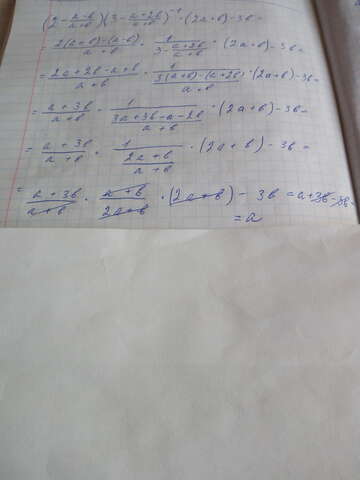 (2 - (a-b)/(a+b)) (3 - (a+2b)/(a+b))^-1 · (2a+b) - 3b =
= (2(a+b)-(a-b))/(a+b) · 1/(3 - (a+2b)/(a+b)) · (2a+b) - 3b =
= (2a+2b-a+b)/(a+b) · 1/((3(a+b)-(a+2b))/(a+b)) · (2a+b) - 3b =
= (a+3b)/(a+b) · 1/((3a+3b-a-2b)/(a+b)) · (2a+b) - 3b =
= (a+3b)/(a+b) · 1/((2a+b)/(a+b)) · (2a+b) - 3b =
= (a+3b)/(a+b) · (a+b)/(2a+b) · (2a+b) - 3b = a+3b-3b =
= a